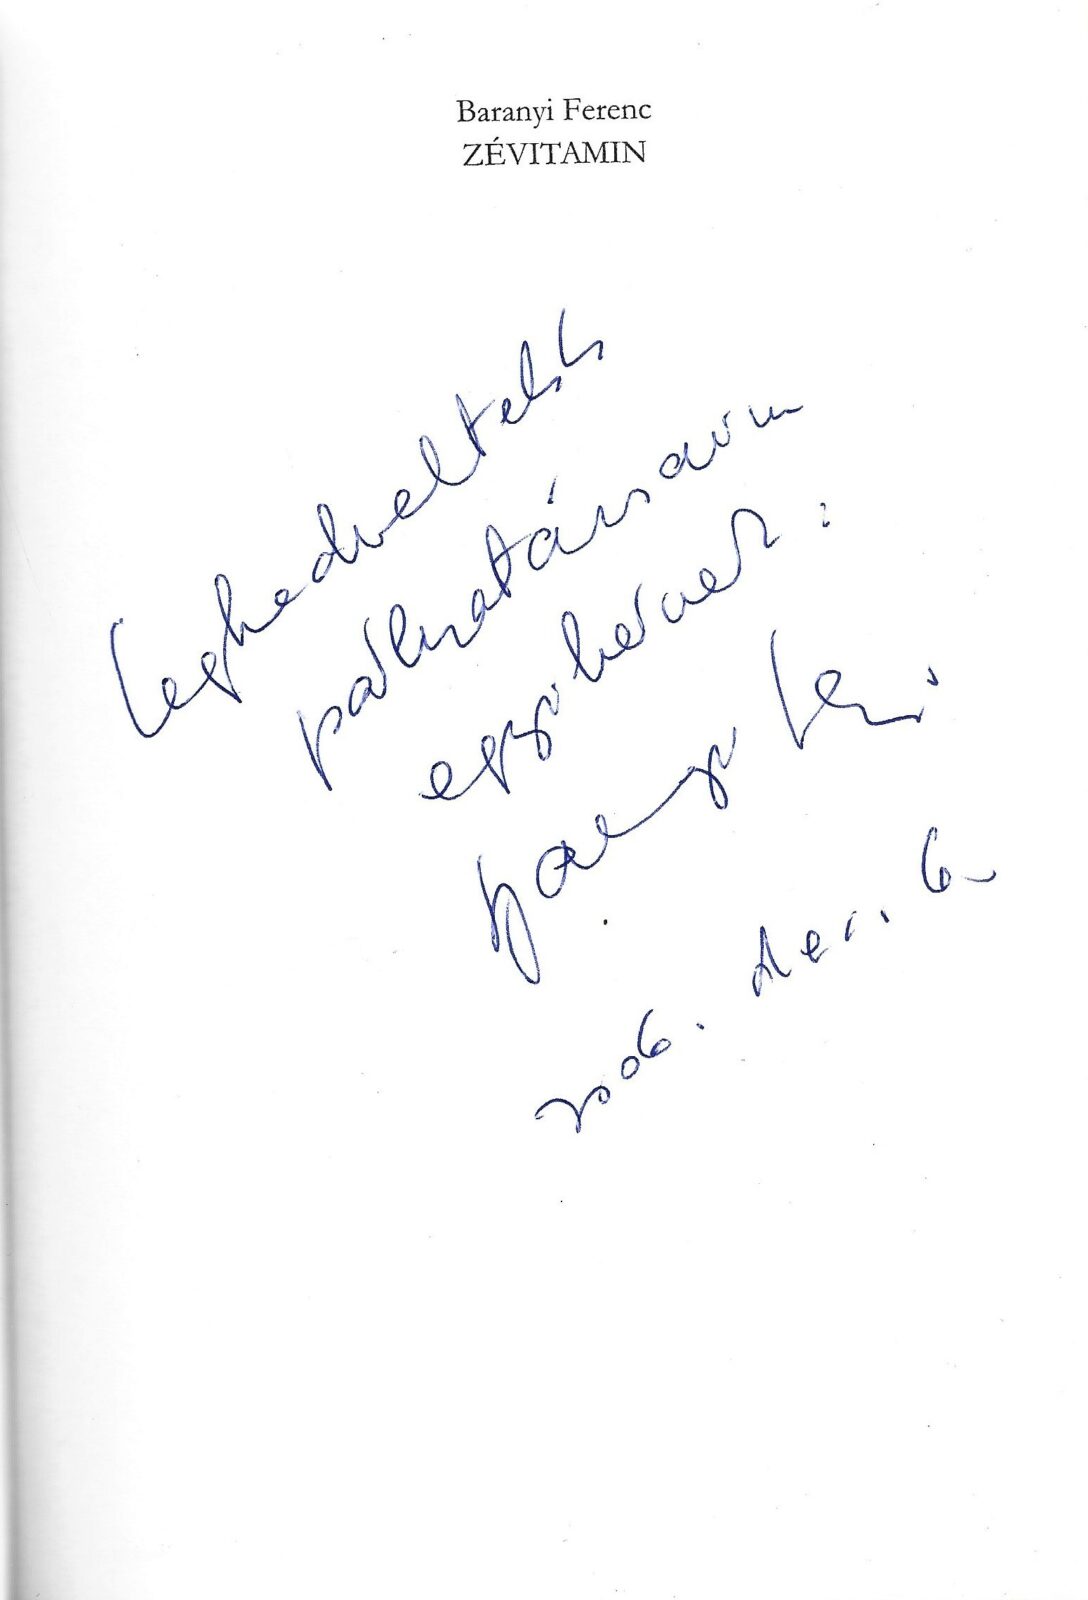 Baranyi Ferenc
ZÉVITAMIN
Legkedveltebb
pályatársaim
egyikének:
Baranyi Feri
2006. dec. 6.